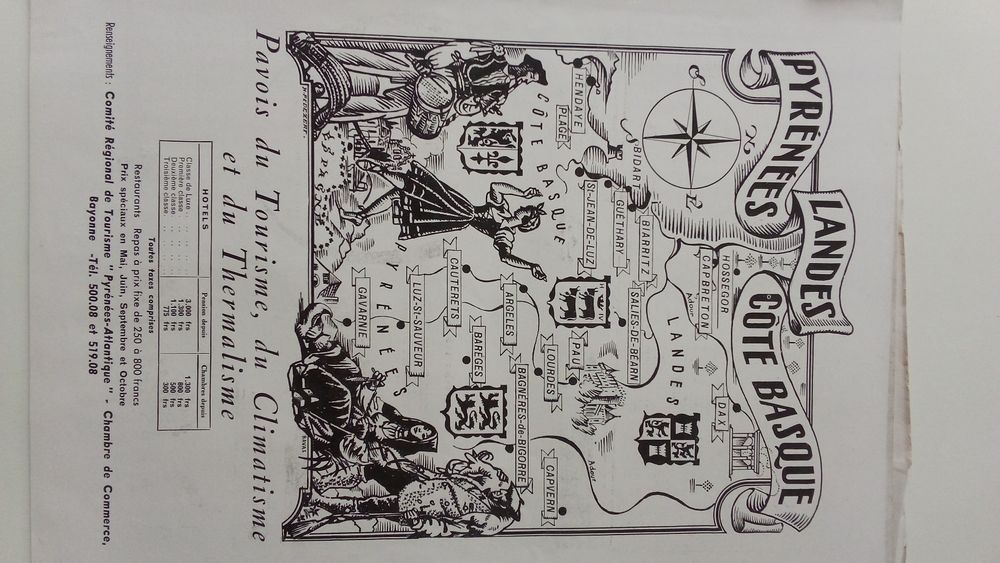 PYRÉNÉES
LANDES
CÔTE BASQUE
N
E
S
HENDAYE
PLAGE
CÔTE BASQUE
BIDART
ST-JEAN-DE-LUZ
GUÉTHARY
BIARRITZ
HOSSEGOR
CAPBRETON
Adour
LANDES
DAX
SALIES-DE-BÉARN
PAU
LOURDES
ARGELÈS
CAUTERETS
LUZ-ST-SAUVEUR
GAVARNIE
BARÈGES
BAGNÈRES-de-BIGORRE
CAPVERN
Adour
PYRÉNÉES
Pavois du Tourisme, du Climatisme
et du Thermalisme
HOTELS
Pension depuis
Chambres depuis
Classe de Luxe . . 3.000 frs 1.300 frs
Première classe . . 1.300 frs 800 frs
Deuxième classe . . 1.100 frs 500 frs
Troisième classe . . 775 frs 300 frs
Toutes taxes comprises
Restaurants Repas à prix fixe de 250 à 800 francs
Prix spéciaux en Mai, Juin, Septembre et Octobre
Renseignements : Comité Régional de Tourisme "Pyrénées-Atlantique" - Chambre de Commerce,
Bayonne -Tél. 500.08 et 519.08